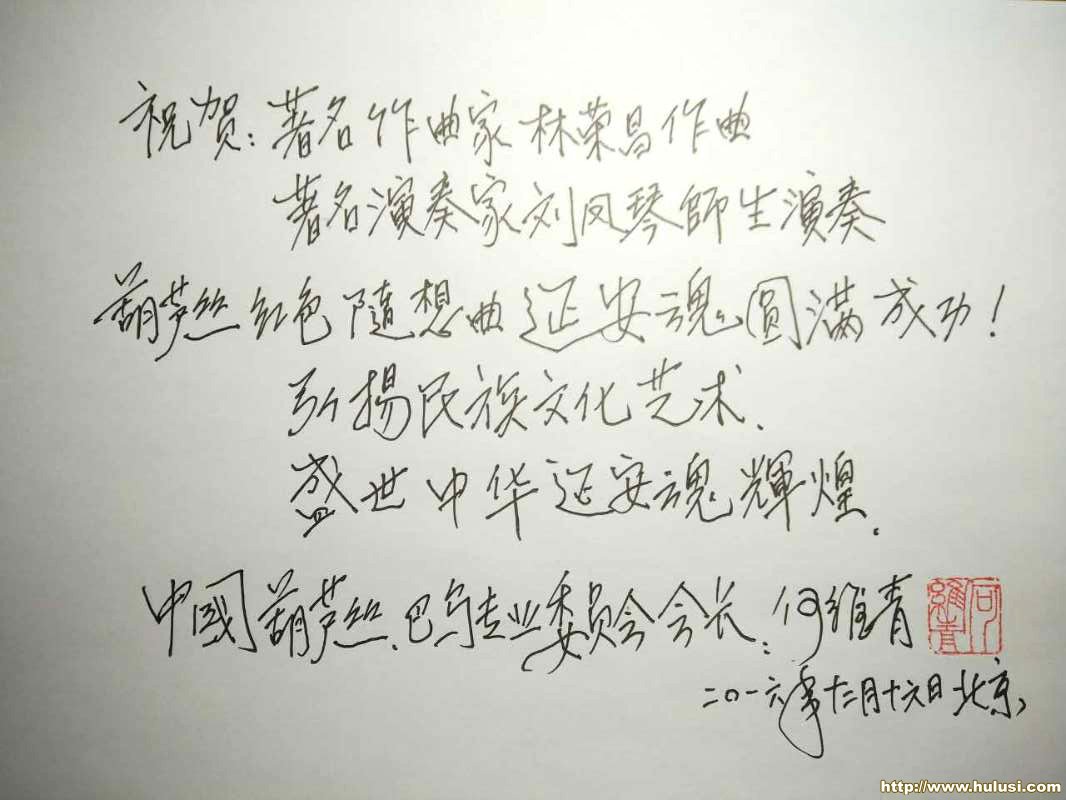 祝贺:著名作曲家林荣昌作曲
著名演奏家刘凤琴師生演奏
葫芦丝红色隨想曲延安魂圆满成功!
弘揚民族文化艺术.
盛世中华延安魂輝煌.
中國葫芦丝.巴乌专业委员会会长:何維青
何維青
二0一六年十二月十六日北京
http://www.hulusi.com